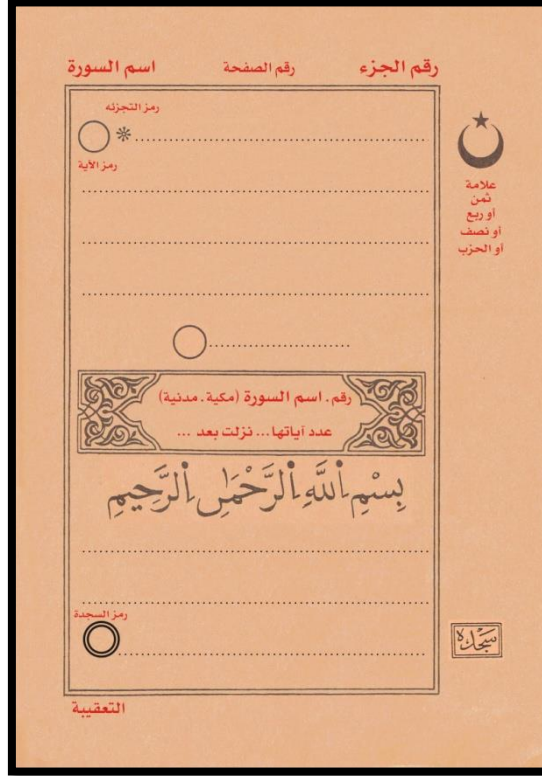 رقم الجزء رقم الصفحة اسم السورة
رمز التجزئه
رمز الآية
علامة
ثمن
أو ربع
أو نصف
أو الحزب
رقم . اسم السورة (مكية . مدنية)
عدد آياتها ... نزلت بعد ...
بِسْمِ اللَّهِ الرَّحْمَٰنِ الرَّحِيمِ
رمز السجدة
سجدة
التعقيبة